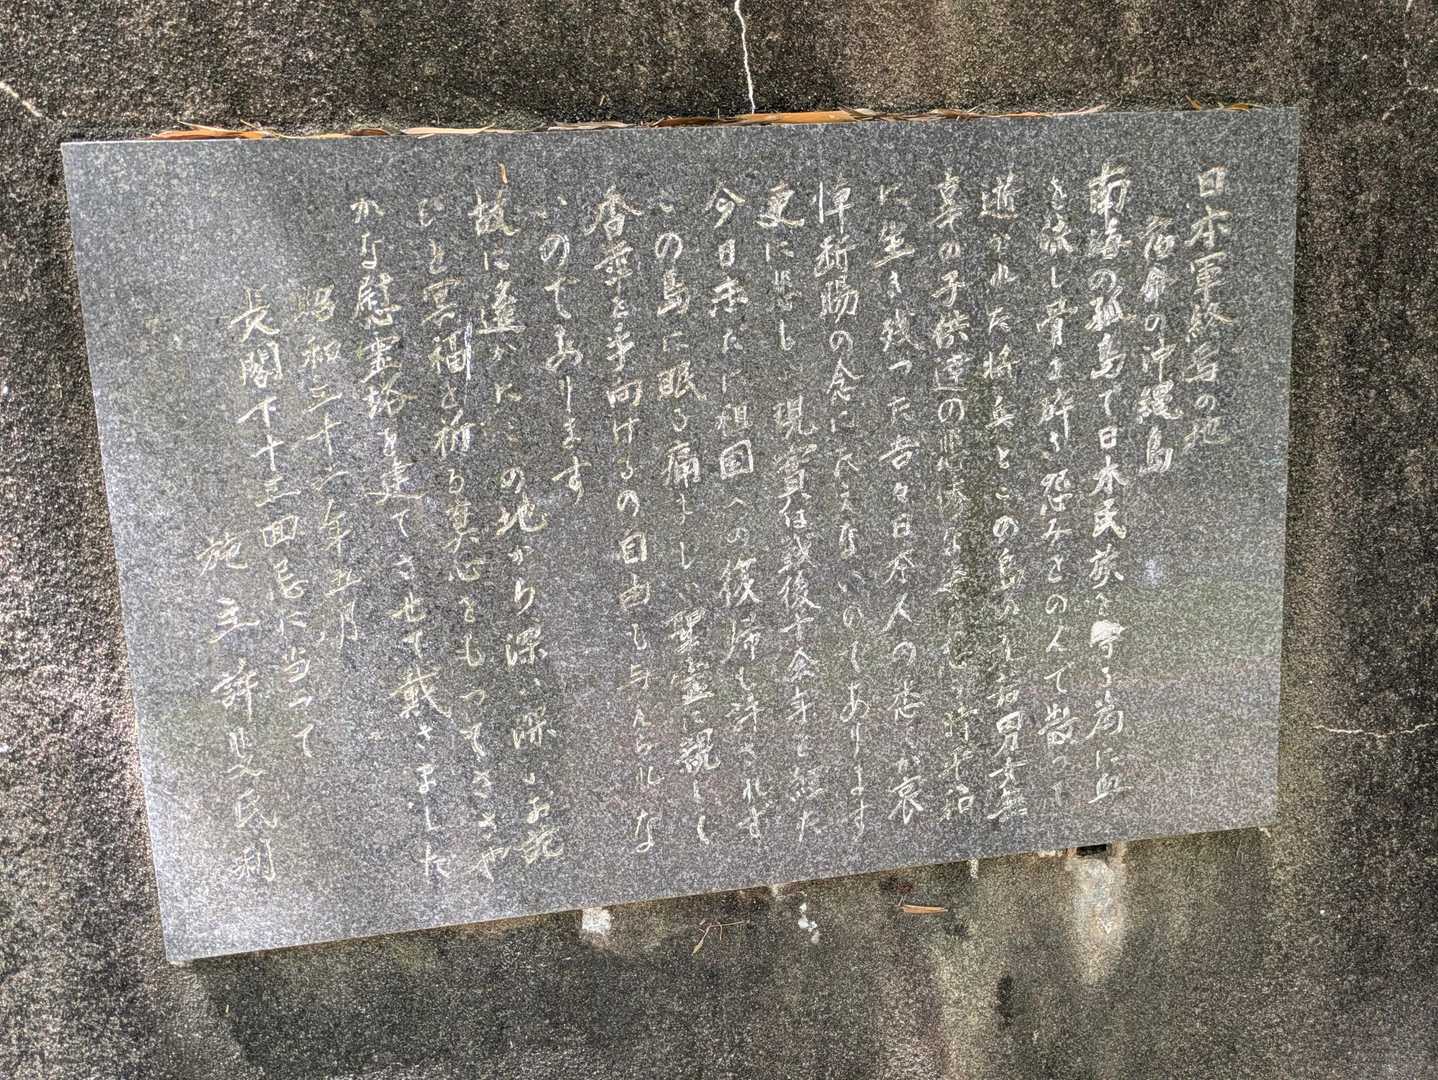 日本軍終焉の地
宿命の沖縄島
南海の孤島で日本民族を守る為に血
を流し骨を砕き怨みをのんで散って
逝かれた将兵とこの島の老若男女無
辜の子供達の悲惨な
に生き残った吾々日本人の悉が哀
悼断腸の念にたえないのであります
更に悲し 現實は戦後十余年を経た
今日未だに祖国への復帰も許されず
この島に眠る痛ましい聖霊に親しく
香華を手向けるの自由も与えられな
いのであります
故に遙かにこの地から深い深いお詫
びと冥福を祈る真心をもってささや
かな慰霊塔を建てさせて戴きました
昭和三十六年五月
長閣下十三回忌に当って
施主